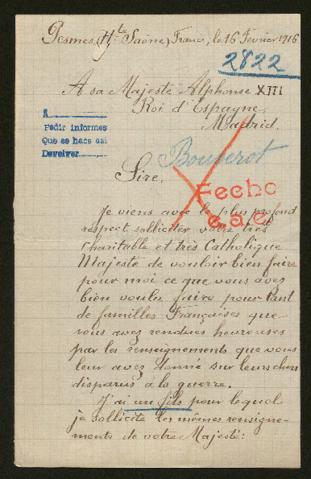 Pesmes, (Hte Saône) France, le 16 Février 1916
2822
A sa Majesté Alphonse XIII
Roi d'Espagne,
Madrid.
Pedir informes
Que se hace así
Devolver
Bouverot
Sire,
Fecho
Je viens avec le plus profond
respect solliciter votre très
charitable et très Catholique
Majesté de vouloir bien faire
pour moi ce que vous avez
bien voulu faire pour tant
de familles Françaises que
vous avez rendues heureuses
par les renseignements que vous
leur avez donné sur leurs chers
disparus à la guerre.
J'ai un fils pour lequel
je sollicite les mêmes renseigne-
ments de votre Majesté: